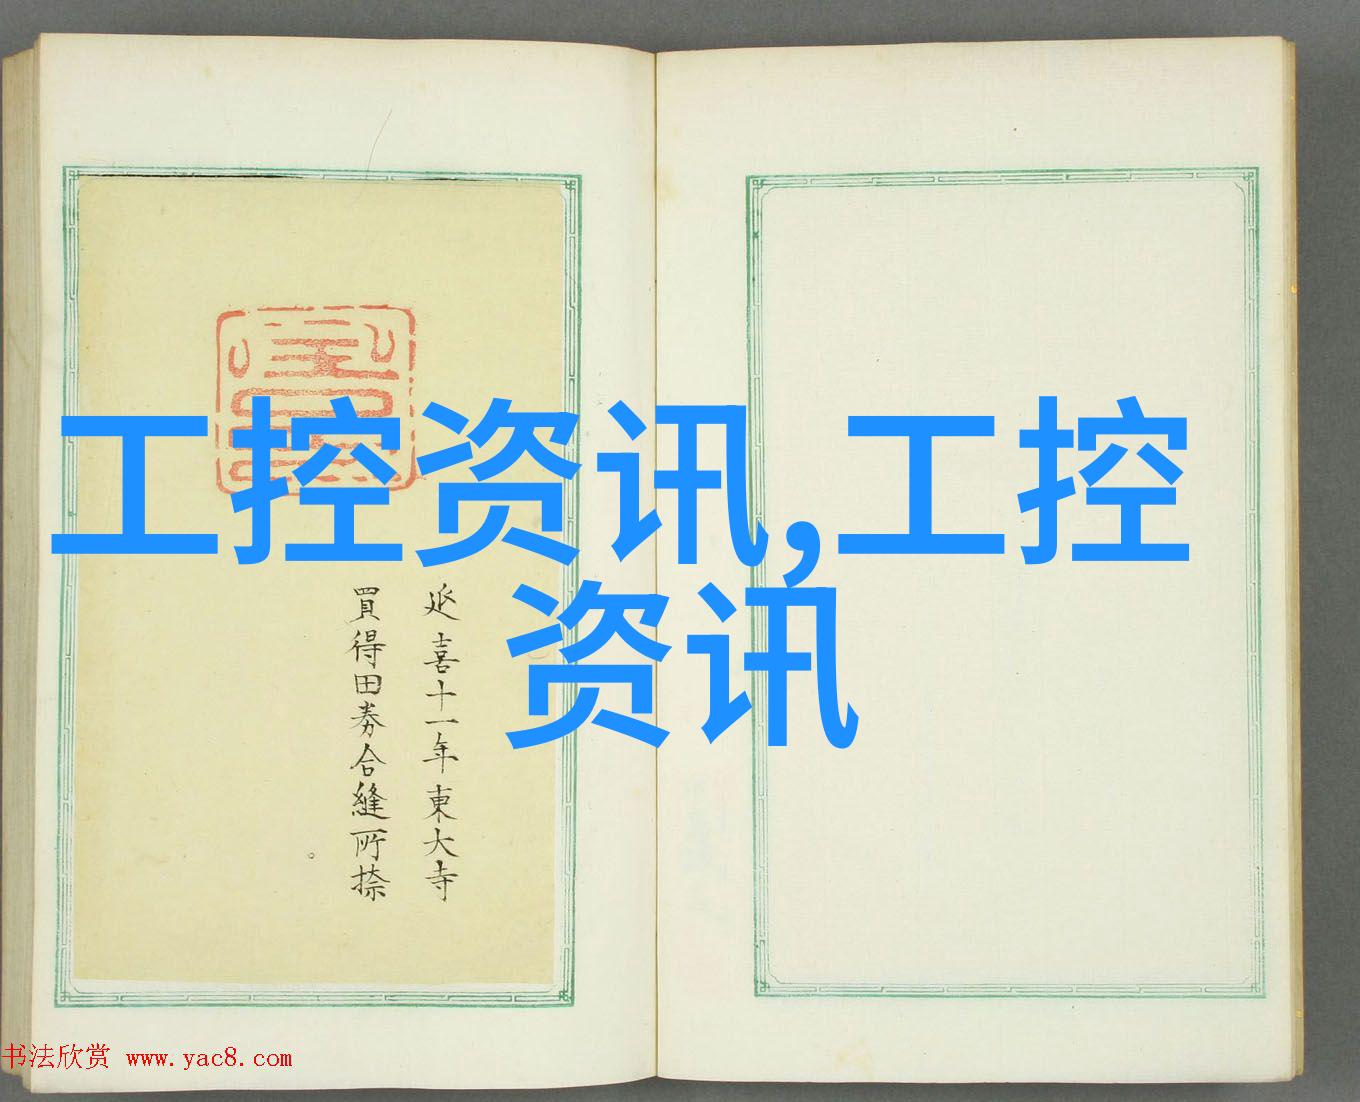 工控资讯,工控
资讯
延喜十一年東大寺
買得田券合縫所捺
书法欣赏 www.yac8.com